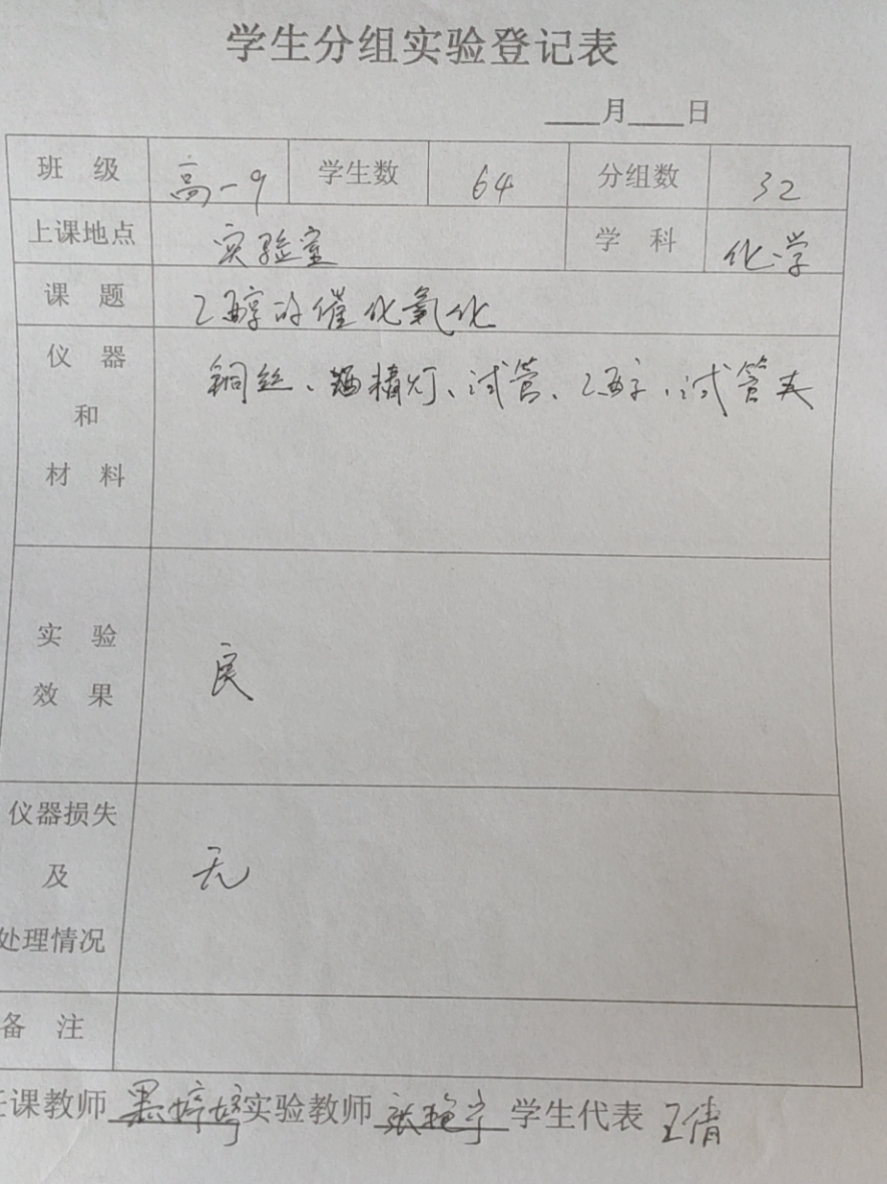 学生分组实验登记表
___月___日
班 级 高一9 学生数 64 分组数 32
上课地点 实验室 学 科 化学
课 题 乙醇的催化氧化
仪 器 铜丝、酒精灯、试管、乙醇、试管夹
和
材 料
实 验
效 果 良
仪器损失
及 无
处理情况
备 注
任课教师 婷婷 实验教师 张艳宇 学生代表 王倩